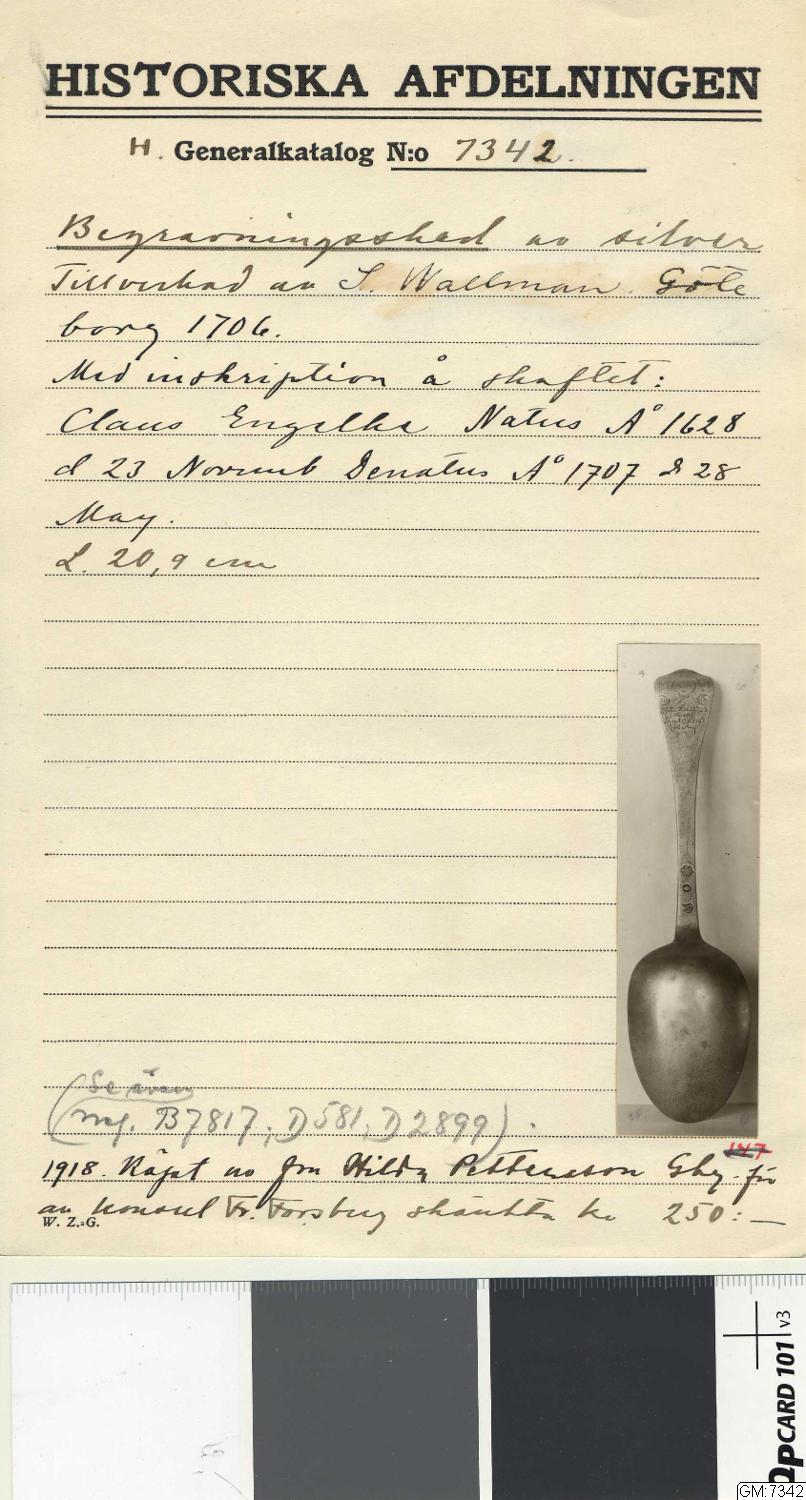 HISTORISKA AFDELNINGEN
H. Generalkatalog N:o 7342.
Begravningssked av silver
Tillverkad av S. Wallman. Göte
borg 1706.
Med inskription å skaftet:
Claus Engelke Natus A° 1628
d 23 Novemb Denatus A° 1707 D 28
May.
L. 20,9 cm
(Se även
mf. B7817, D581, D2899).
147
1918. Köpt av fru Hilda Pettersson Gbg. för
av konsul Fr. Forsberg skänkta kr 250:—
W. Z.-G.
QPCARD 101 v3
GM:7342